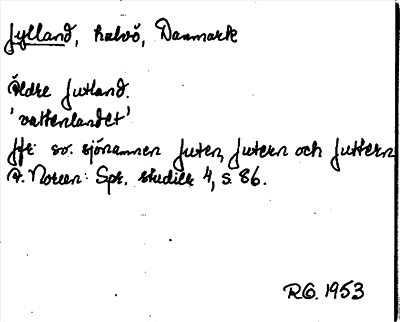 Jylland, halvö, Danmark
Äldre Jutland.
'vattenlandet'
Jfr sv. sjönamnen Juten, Jutern och Juttern
A. Noreen: Spr. studier 4, s. 86.
R.G. 1953